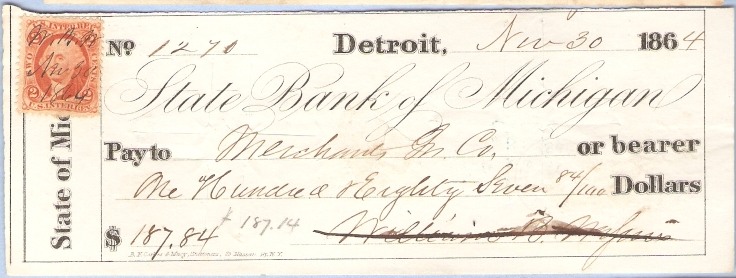 U.S. INTER. REV.
Nov 30
1864
2 2
U.S. INTER. REV.
State of Mic
No 1270 Detroit, Nov 30 1864
State Bank of Michigan
Pay to Merchants Co. or bearer
One Hundred & Eighty Seven 84/100 Dollars
$ 187.84 187.14
William B.